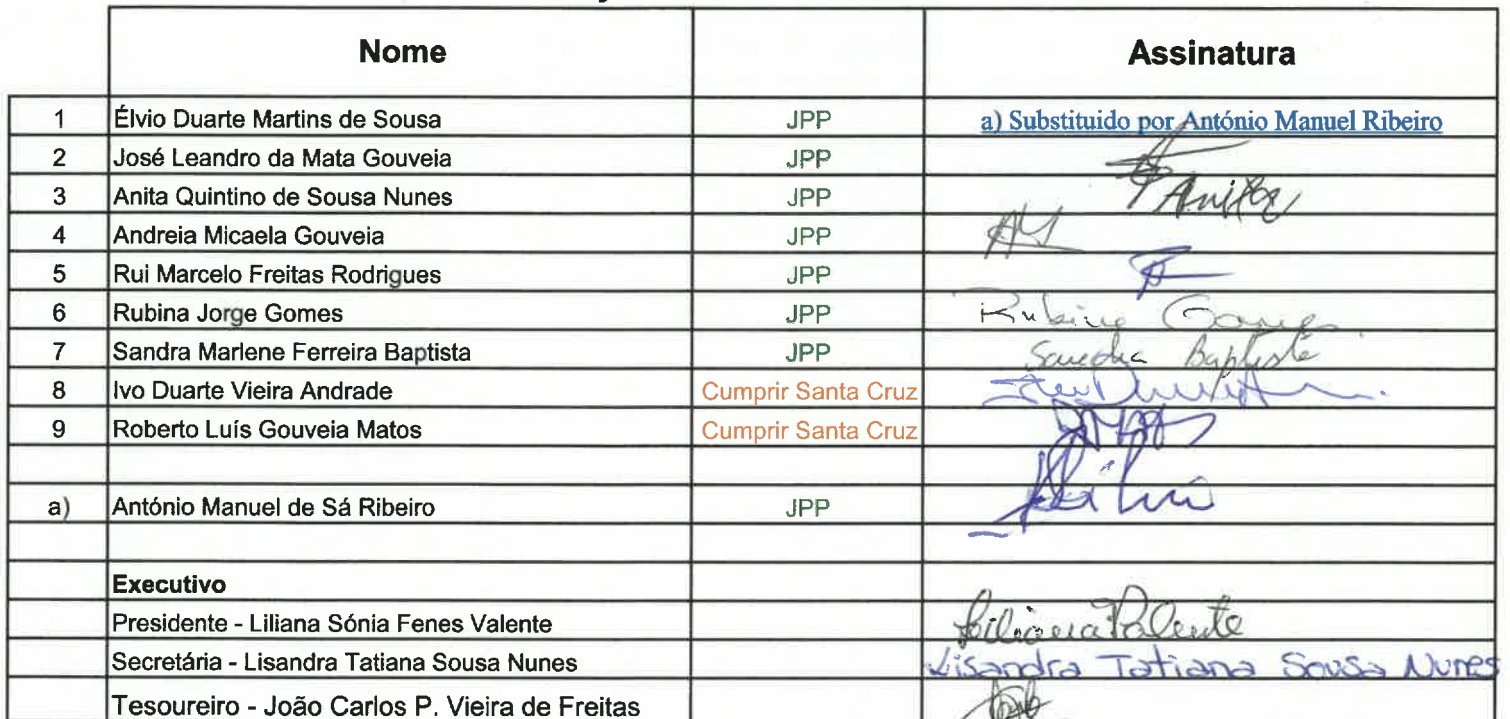 Nome Assinatura
1 Élvio Duarte Martins de Sousa JPP a) Substituido por António Manuel Ribeiro
2 José Leandro da Mata Gouveia JPP
3 Anita Quintino de Sousa Nunes JPP Anita
4 Andreia Micaela Gouveia JPP
5 Rui Marcelo Freitas Rodrigues JPP
6 Rubina Jorge Gomes JPP Rubina Gomes
7 Sandra Marlene Ferreira Baptista JPP Sandra Baptista
8 Ivo Duarte Vieira Andrade Cumprir Santa Cruz
9 Roberto Luís Gouveia Matos Cumprir Santa Cruz
a) António Manuel de Sá Ribeiro JPP
Executivo
Presidente - Liliana Sónia Fenes Valente Liliana Valente
Secretária - Lisandra Tatiana Sousa Nunes Lisandra Tatiana Sousa Nunes
Tesoureiro - João Carlos P. Vieira de Freitas